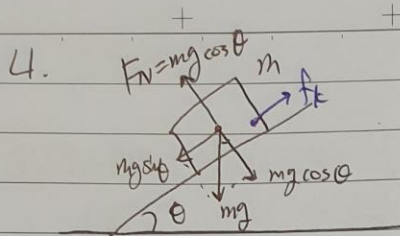 4.
F_N = mg cosθ
m
f_k
mg sinθ
mg cosθ
θ
mg